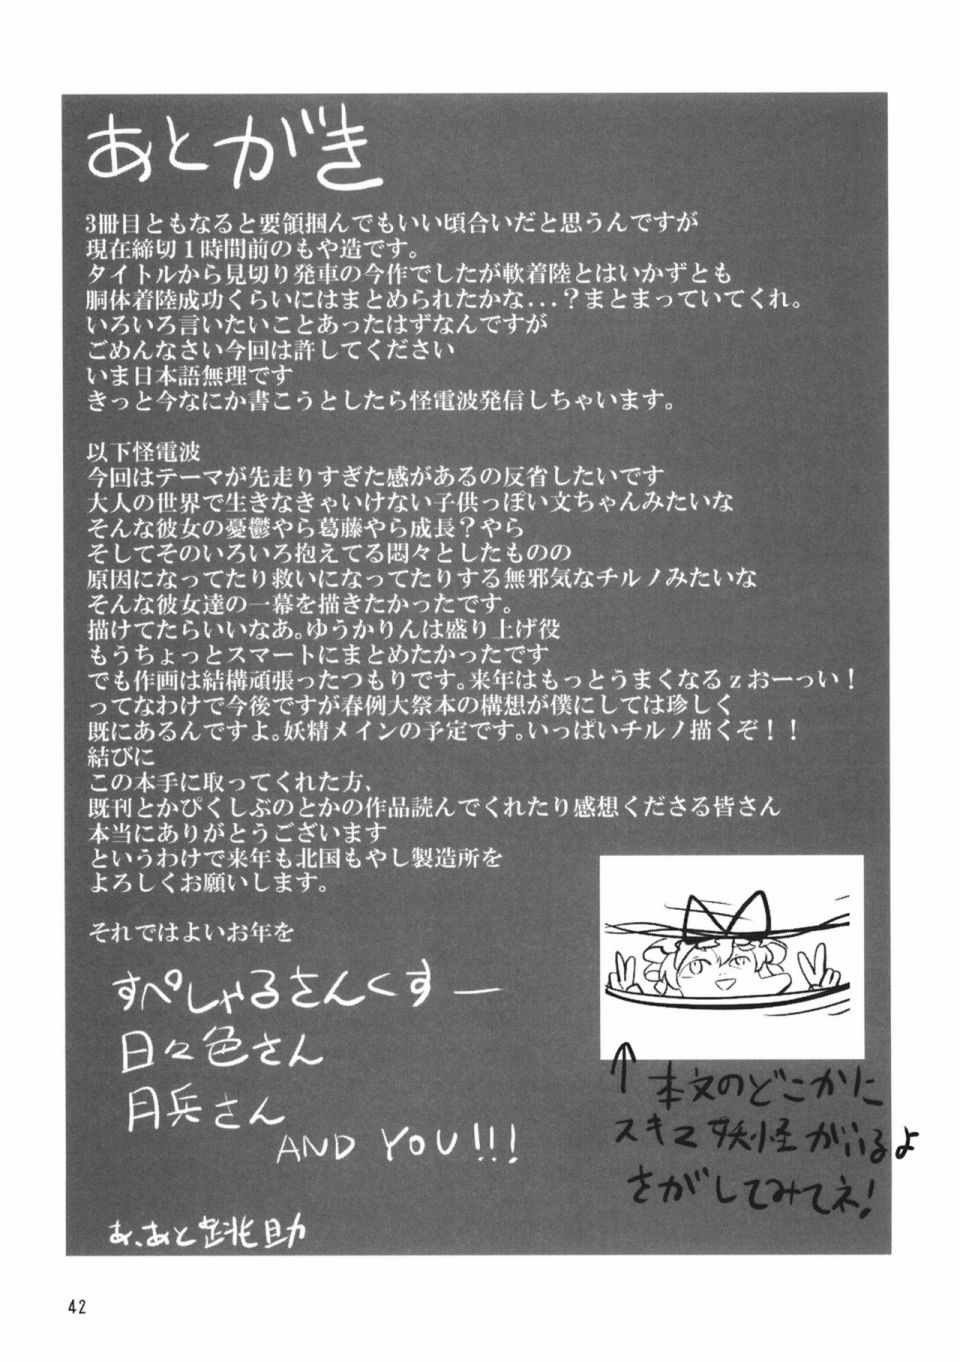 あとがき
3冊目ともなると要領掴んでもいい頃合いだと思うんですが
現在締切1時間前のもや造です。
タイトルから見切り発車の今作でしたが軟着陸とはいかずとも
胴体着陸成功くらいにはまとめられたかな...？まとまっていてくれ。
いろいろ言いたいことあったはずなんですが
ごめんなさい今回は許してください
いま日本語無理です
きっと今なにか書こうとしたら怪電波発信しちゃいます。
以下怪電波
今回はテーマが先走りすぎた感があるの反省したいです
大人の世界で生きなきゃいけない子供っぽい文ちゃんみたいな
そんな彼女の憂鬱やら葛藤やら成長？やら
そしてそのいろいろ抱えてる悶々としたものの
原因になってたり救いになってたりする無邪気なチルノみたいな
そんな彼女達の一幕を描きたかったです。
描けてたらいいなあ。ゆうかりんは盛り上げ役
もうちょっとスマートにまとめたかったです
でも作画は結構頑張ったつもりです。来年はもっとうまくなるｚおーっい！
ってなわけで今後ですが春例大祭本の構想が僕にしては珍しく
既にあるんですよ。妖精メインの予定です。いっぱいチルノ描くぞ！！
結びに
この本手に取ってくれた方、
既刊とかぴくしぶのとかの作品読んでくれたり感想くださる皆さん
本当にありがとうございます
というわけで来年も北国もやし製造所を
よろしくお願いします。
それではよいお年を
すぺしゃるさんくすー
日々色さん
月兵さん
AND YOU!!!
あ、あと 助
↑本文のどこかに
スキマ妖怪がいるよ
さがしてみてネ!
42